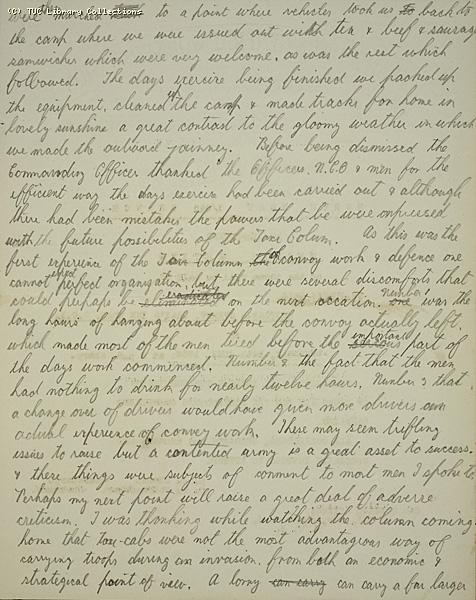 (C) TUC Library Collections
were then marched to a point where vehicles took us back to
the camp where we were issued out with tea & beef & sausage
samwiches which were very welcome, as was the rest which
followed. The days exercise being finished we packed up
the equipment, cleaned up the camp & made tracks for home in
lovely sunshine a great contrast to the gloomy weather in which
we made the outward journey. Before being dismissed the
Commanding Officer thanked the Officers, N.C.O & men for the
efficient way the days exercise had been carried out & although
there had been mistakes the powers that be were impressed
with the future possibilities of the Taxi Colum. As this was the
first experience of the Taxi Column of convoy work & defence one
cannot expect perfect organisation, but there were several discomforts that
could perhaps be eradicated on the next occation. Number 1 was the
long hours of hanging about before the convoy actually left,
which made most of the men tired before the important part of
the days work commenced. Number 2 the fact that the men
had nothing to drink for nearly twelve hours, Number 3 that
a change over of drivers would have given more drivers an
actual experience of convoy work. These may seem trifling
issues to raise but a contented army is a great asset to success.
& these things were subject of coment to most men I spoke to.
Perhaps my next point will raise a great deal of adverse
criticism, I was thinking while watching the column coming
home that taxi-cabs were not the most advantagious way of
carrying troops during an invasion, from both an economic &
strategical point of view. A lorry can carry can carry a far larger